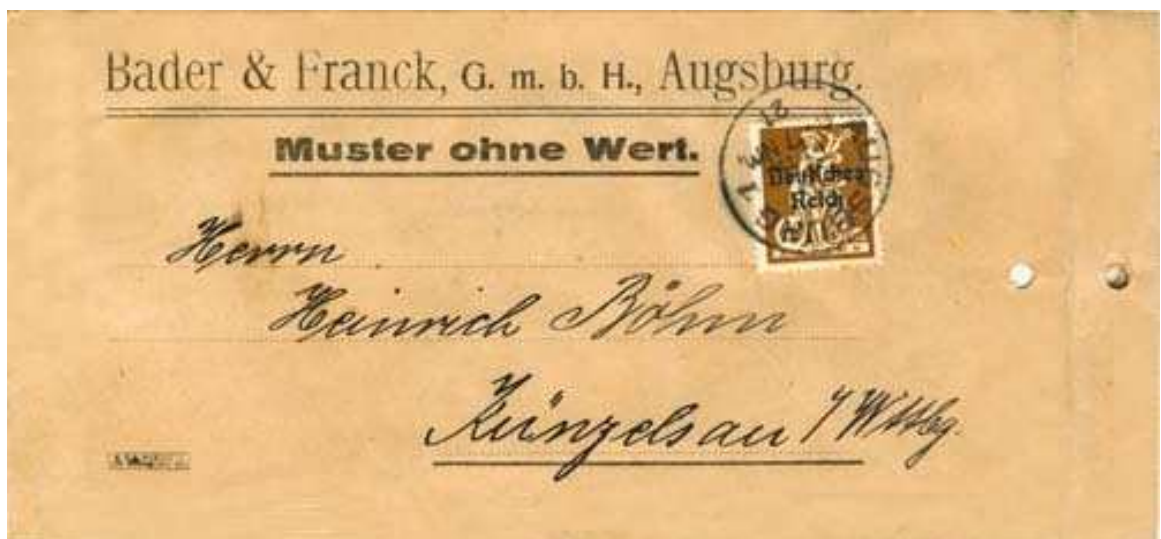 Bader & Franck, G. m. b. H., Augsburg.
Muster ohne Wert.
Deutsches
Reich
Herrn
Heinrich Böhm
Künzelsau i/ Wttbg.